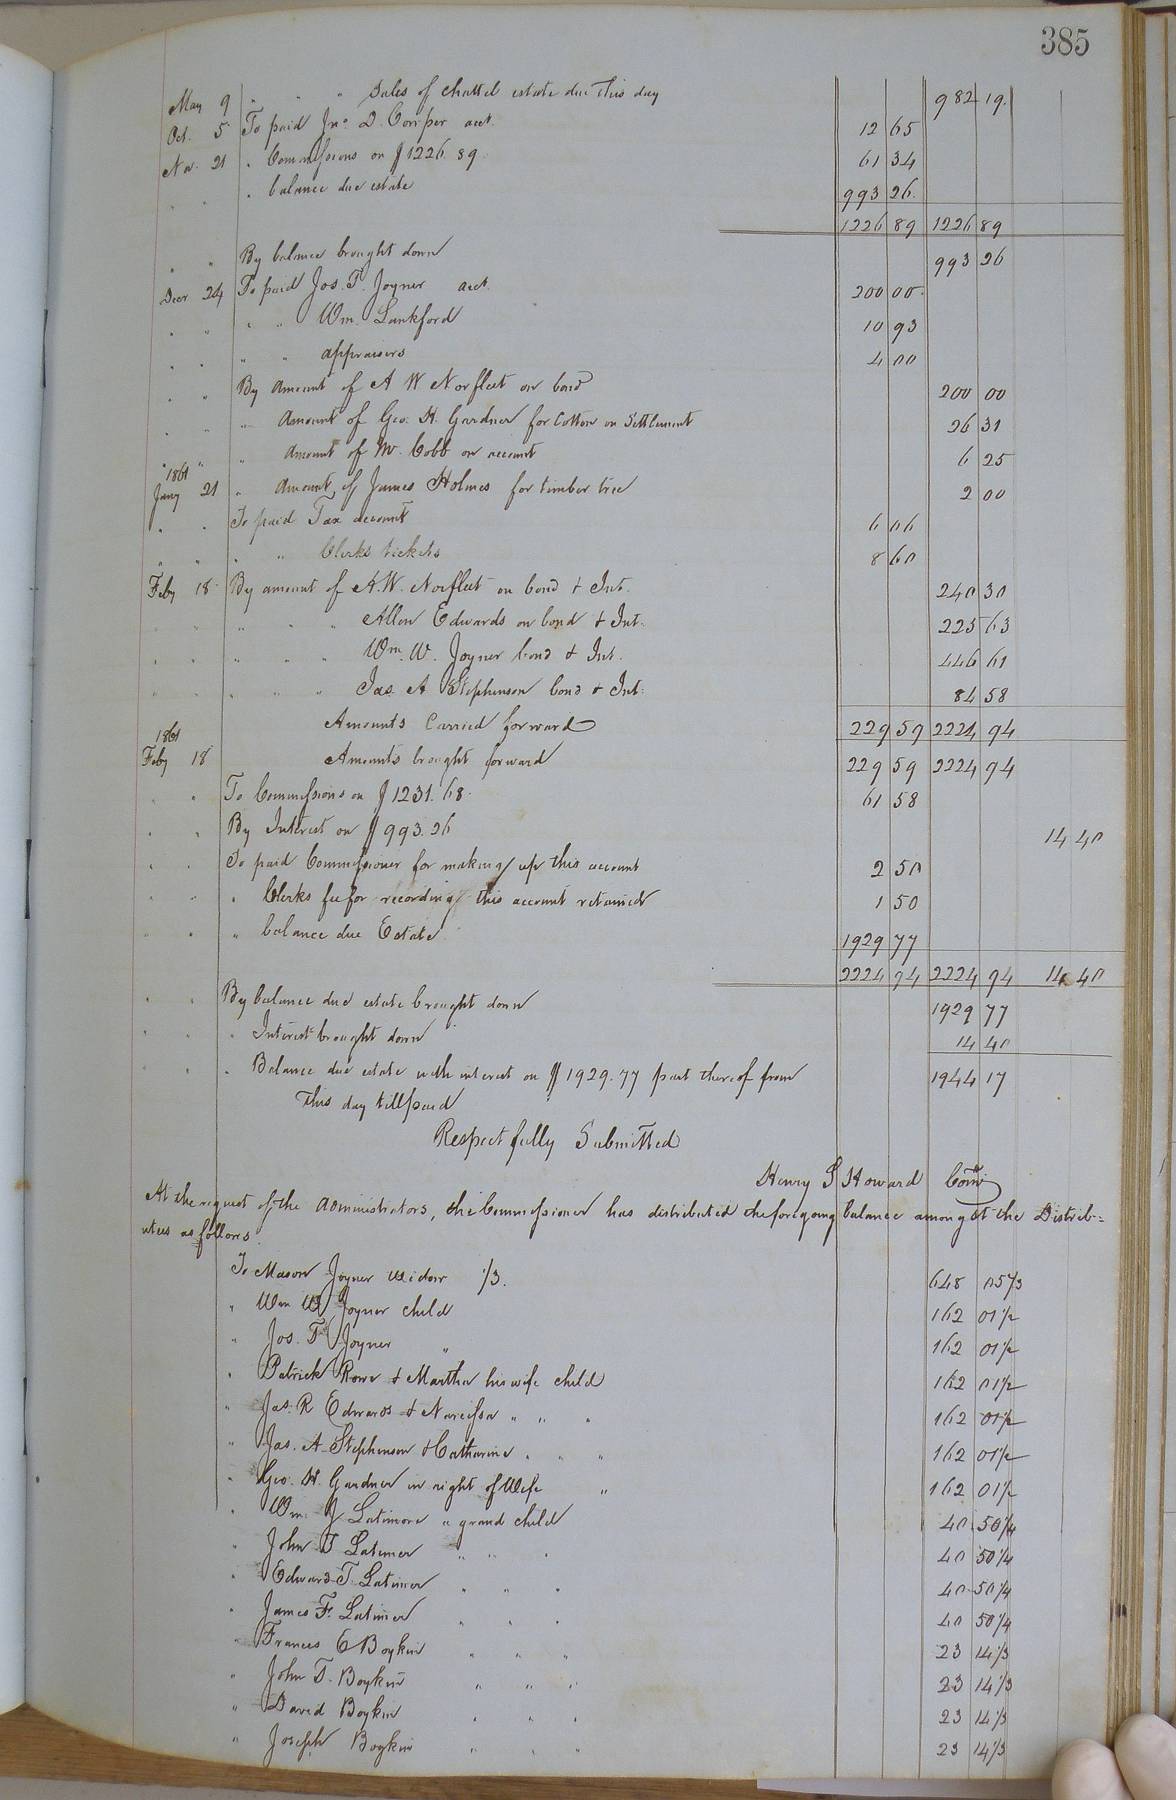 385
May 9 " " " Sales of chattel estate due this day 982 19
Oct. 5 To paid Jno. D. Cooper acct. 12 65
Nov. 21 " Commissions on $1226 89 61 34
" " " balance due estate 993 26
1226 89 1226 89
" " By balance brought down 993 26
Decr 24 To paid Jos. T. Joyner acct. 200 00
" " " " Wm. Lankford 10 93
" " " " appraisers 4 00
" " By Amount of A W Norfleet on bond 200 00
" " " Amount of Geo. H. Gardner for Cotton on Settlement 26 31
" " " Amount of M. Cobb on account 6 25
1861
Jany 21 " Amount of James Holmes for timber tree 2 00
" " To paid Tax account 6 06
" " " " Clerks tickets 8 60
Feby 18 By amount of A. W. Norfleet on bond & Int. 240 30
" " " " " Allen Edwards on bond & Int. 225 63
" " " " " Wm. W. Joyner bond & Int. 446 61
" " " " " Jas. A Stephenson bond & Int. 84 58
Amounts Carried forward 229 59 2224 94
1861
Feby 18 Amounts brought forward 229 59 2224 94
" " To Commissions on $1231.68 61 58
" " By Interest on $993.26 14 40
" " To paid Commissioner for making up this account 2 50
" " " Clerks fee for recording this account retained 1 50
" " " balance due Estate 1929 77
2224 94 2224 94 14 40
" " By balance due estate brought down 1929 77
" " " Interest brought down 14 40
" " " Balance due estate with interest on $1929.77 part thereof from 1944 17
this day till paid
Respectfully Submitted
Henry S Howard Comr
At the request of the Administrators, the Commissioner has distributed the foregoing balance amongst the Distrib=
utees as follows
To Mason Joyner widow 1/3. 648 05 2/3
" Wm W Joyner child 162 01 1/2
" Jos. T. Joyner " 162 01 1/2
" Patrick Rowe & Martha his wife child 162 01 1/2
" Jas. R Edwards & Narcissa " " " 162 01 1/2
" Jas. A Stephenson & Catharine " " " 162 01 1/2
" Geo. H. Gardner in right of Wife " 162 01 1/2
" Wm. J Latimore a grand child 40 50 1/4
" John T Latimer " " " 40 50 1/4
" Edward T. Latimer " " " 40 50 1/4
" James F. Latimer " " " 40 50 1/4
" Frances E Boykin " " " 23 14 1/3
" John T. Boykin " " " 23 14 1/3
" David Boykin " " " 23 14 1/3
" Joseph Boykin " " " 23 14 1/3